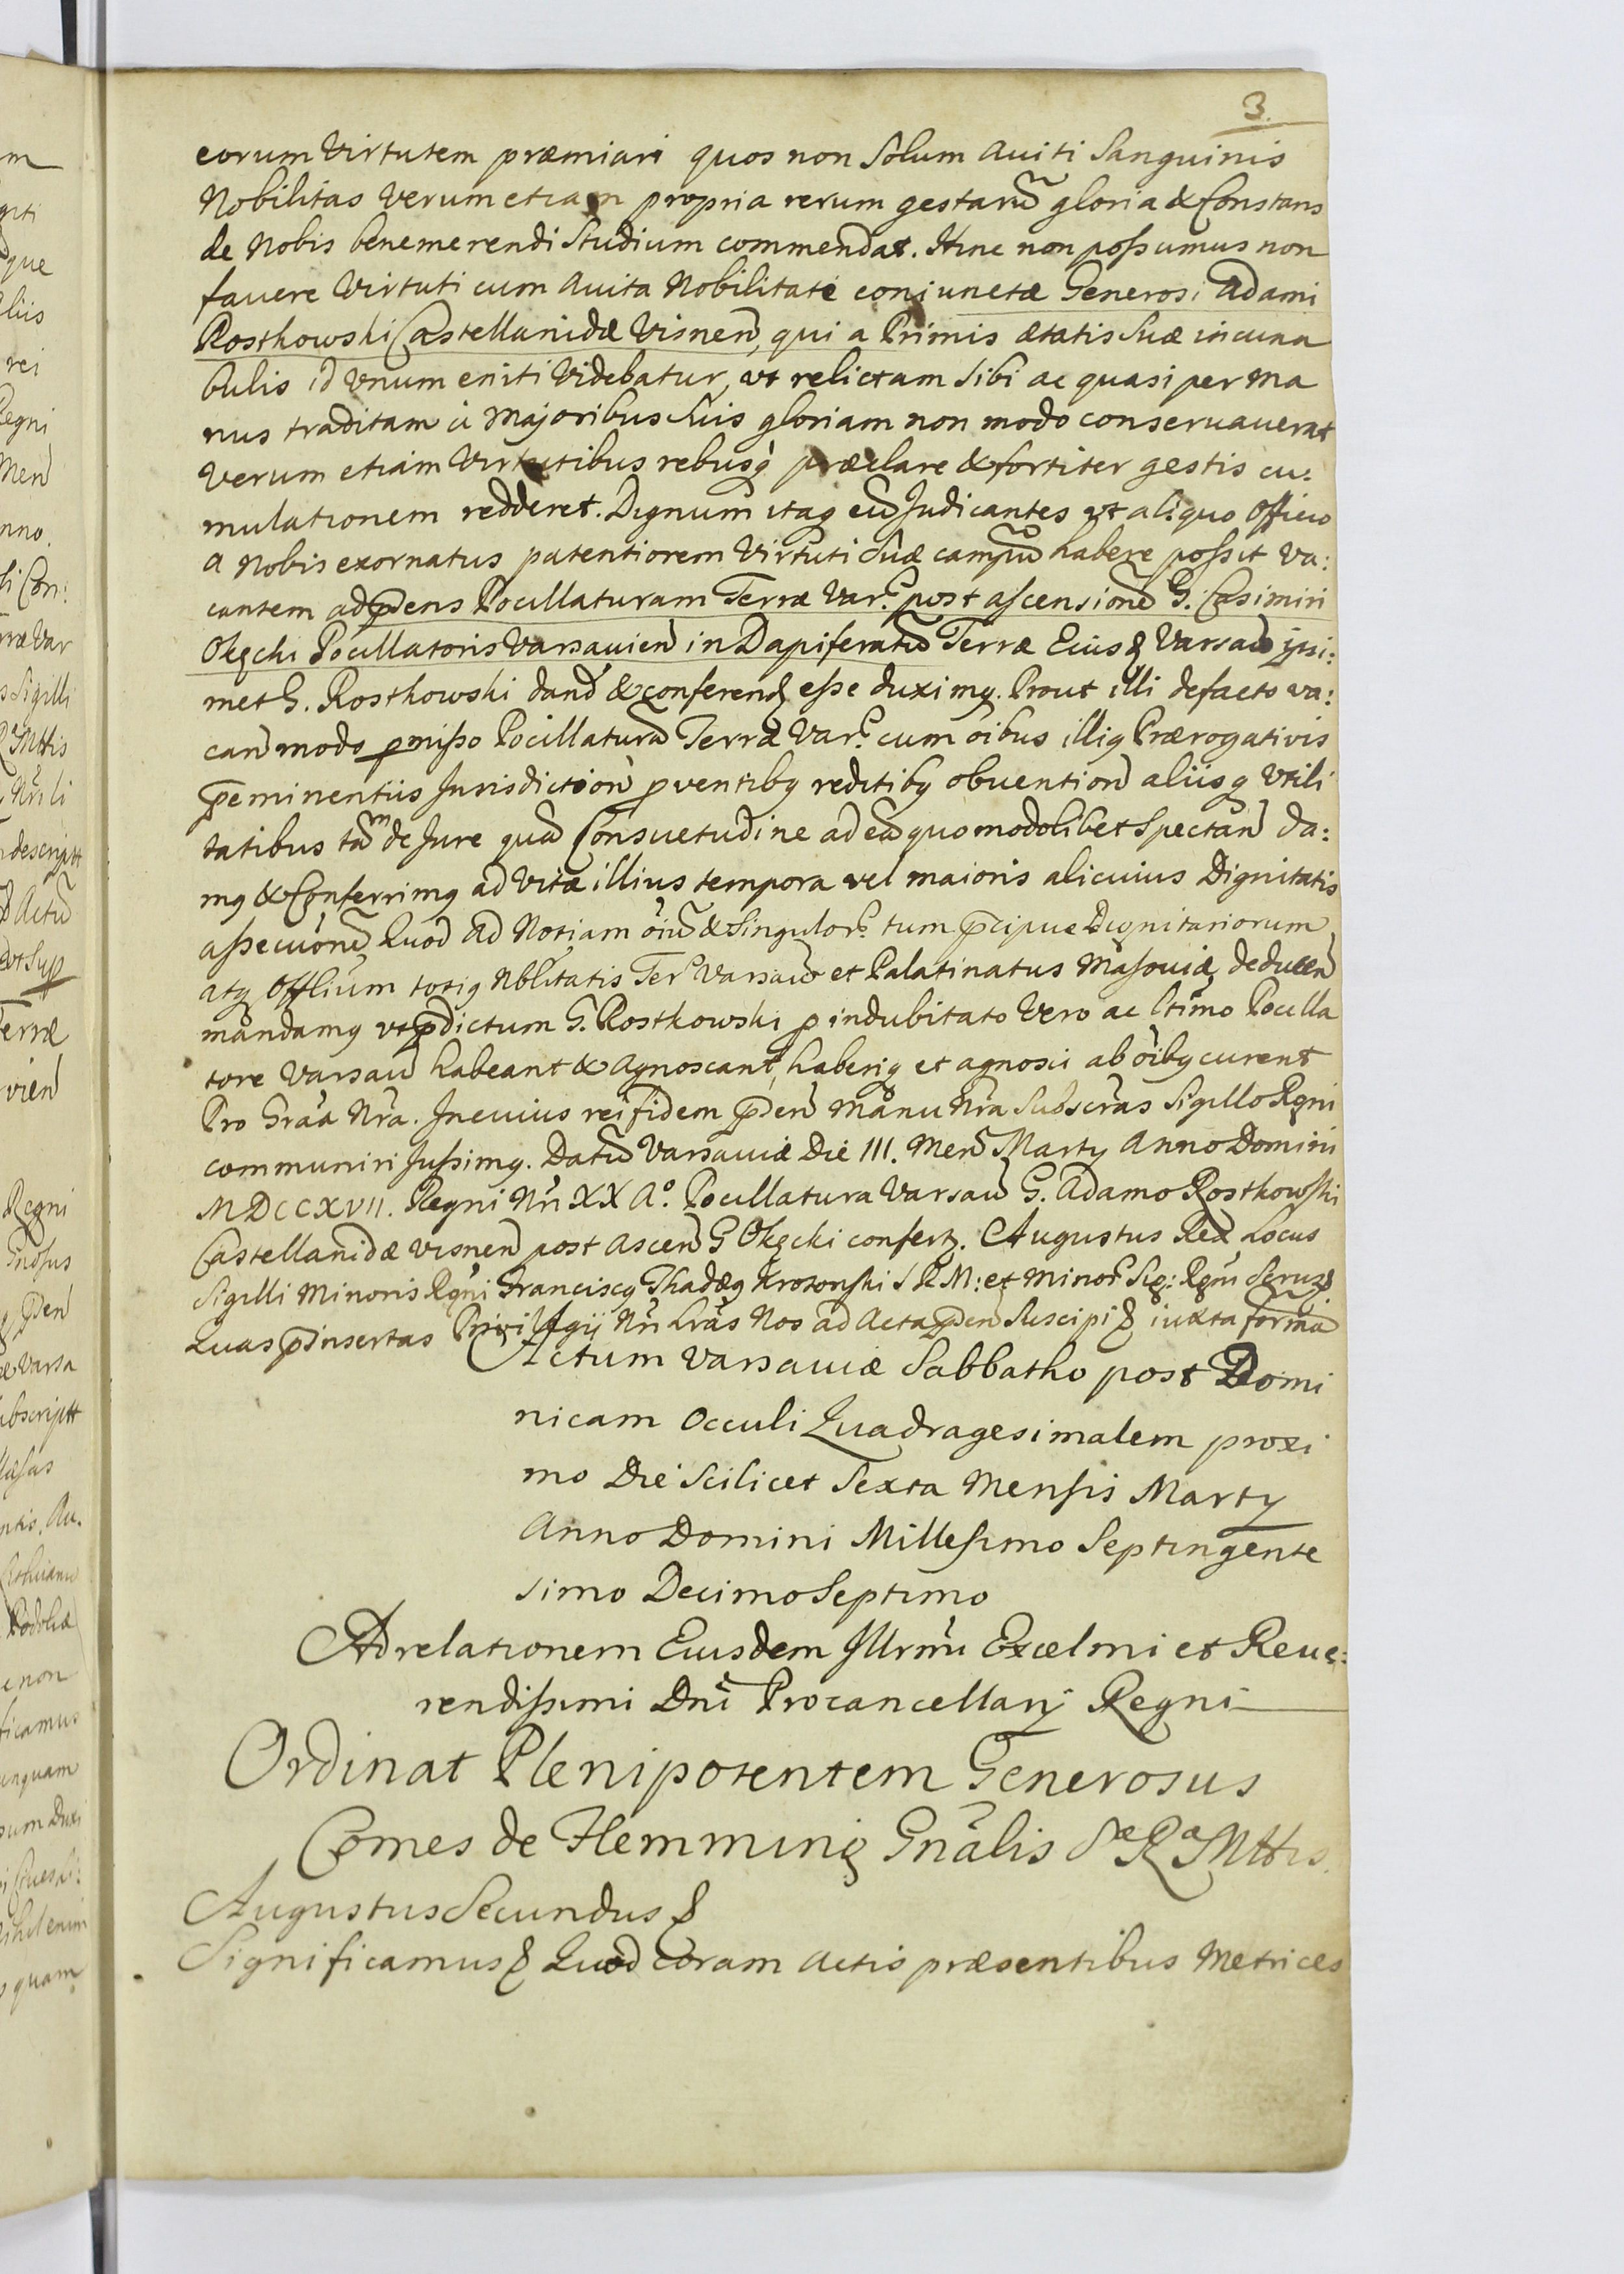 3.
eorum Virtutem præmiari quos non Solum Auiti Sanguinis
Nobilitas Verum etiam propria rerum gestarũ gloria & Constans
de Nobis benemerendi Studium commendat. Hinc non possumus non
fauere Virtuti cum Auita Nobilitate coniunctæ Generosi Adami
Rostkowski Castellanidæ Visnen̄, qui a Primis ætatis Suæ incuna
bulis id Vnum eniti Videbatur, vt relictam Sibi ac quasi per ma
nus traditam à Majoribus Suis gloriam non modo conseruauerat
Verum etiam Virtutibus rebusq́ præclare & fortiter gestis cu:
mulationem redderet. Dignum itaq eũ Judicantes vt aliquo Officio
A Nobis exornatus patentiorem Virtuti Suæ campũ habere possit va:
cantem ad p̄dens Pocillaturam Terræ Var. post ascensionẽ G. Casimiri
Okęcki Pocillatoris Varsauien̄ in Dapiferatũ Terræ Eius& Varsau̅ ipsi:
met G. Rostkowski dand̄ & conferend& esse duximq. Prout illi defacto va:
can̄ modo p̱misso Pocillaturã Terræ Var. cum oi̅bus illiq Prærogativis
p̄eminentiis Jurisdiction̄ p̱ventibq reditibq obuention̄ aliisq Vtili
tatibus tãm de Jure quã Consuetudine ad eã quomodolibet Spectan̄ da:
mq & Conferrimq ad Vitæ illius tempora vel maioris alicuius Dignitatis
assecuõne, Quod Ad Notiam oi̅ũ & Singulor. tum p̄cipue Dignitariorum
atq Offlium totiq Nblitatis Ter. Varsau̅ et Palatinatus Masouiæ deducen̄
mandamq vt p̄dictum G. Rostkowski p̱ indubitato Vero ac ltimo Pocilla
tore Varsau̅ habeant & Agnoscant, haberiq et agnosci ab oi̅bq curent
Pro Gra̅a Nr̅a. In cuius rei fidem p̄den̄ Manu Nr̅a Subscr̅as Sigillo Rg̅ni
communiri Jussimq. Datũ Varsauiæ Die III. Men̄ Marty Anno Domini
MDCCXVII. Regni Nr̅i XX A°. Pocillatura Varsau̅ G. Adamo Rostkowski
Castellanidæ Visnen̄ post Ascen̄ G Okęcki confert&. Augustus Rex Locus
Sigilli Minoris Rg̅ni Franciscq Thadæq Krotowski S R M: et Minor Sig: Rg̅ni
Quas p̄insertas Privilegij Nr̅i Lr̅as Nos ad Acta p̄den̄ Suscipi& iuxta formã
Actum Varsauiæ Sabbatho post Domi
nicam Occuli Quadragesimalem proxi
mo Die Scilicet Sexta Mensis Marty
Anno Domini Millesimo Septingente
simo Decimo Septimo
Ad relationem Eiusdem Illrmi Excelmi et Reue:
rendissimi Dni Procancellarij Regni
Ordinat Plenipotentem Generosus
Comes de Flemming Gnalis Sæ Ræ Mttis
Augustus Secundus &
Significamus & Quod coram Actis præsentibus Metrices